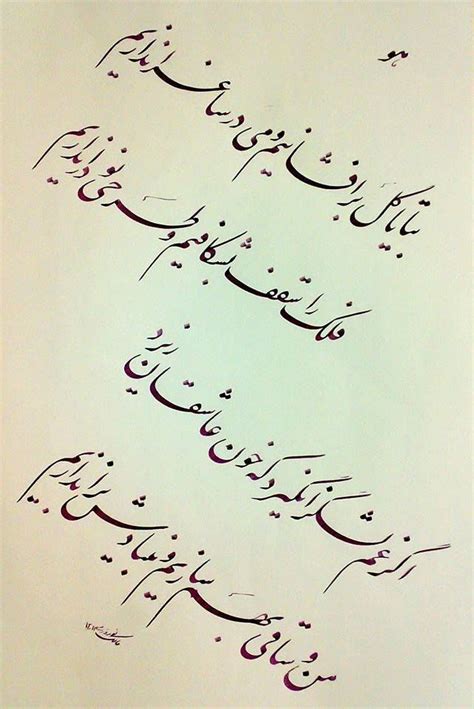 هو
بیا تا گل برافشانیم و می در ساغر اندازیم
فلک را سقف بشکافیم و طرحی نو دراندازیم
اگر غم لشگر انگیزد که خون عاشقان ریزد
من و ساقی بهم سازیم و بنیادش براندازیم